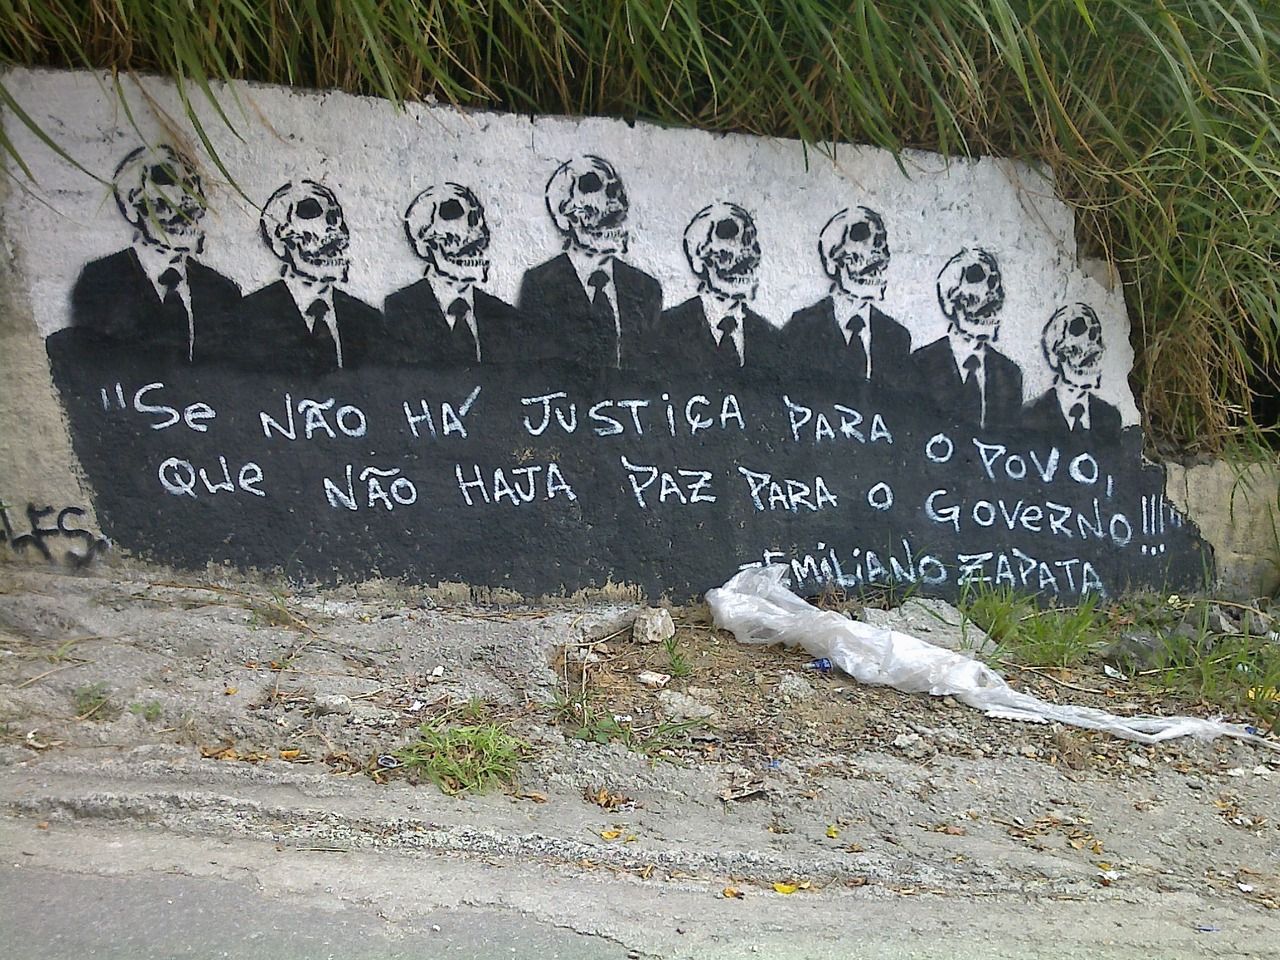 "Se NÃO HÁ JUSTiÇA PARA O POVO,
Que NÃO HAJA PAZ PARA O GOVeRNO!!!"
-EMiLiANO ZAPATA
LFS